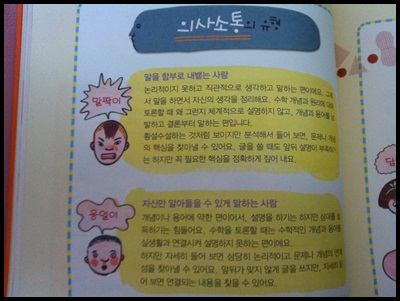 의사소통의 유형
말을 함부로 내뱉는 사람
딸딱이
논리적이지 못하고 직관적으로 생각하고 말하는 편이에요.
서 말을 하면서 자신의 생각을 정리해요. 수학 개념과 원리에 대해
토론할 때 왜 그런지 체계적으로 설명하지 않고, 개념과 용어를 남
발하고 결론부터 말하는 편입니다.
횡설수설하는 것처럼 보이지만 분석해서 들어 보면, 문제나 개념
의 핵심을 찾아낼 수 있어요. 글을 쓸 때도 앞뒤 설명이 부족하기
는 하지만 꼭 필요한 핵심을 정확하게 짚어 내요.
자신만 알아들을 수 있게 말하는 사람
옹얼이
개념이나 용어에 약한 편이어서, 설명을 하기는 하지만 상대를 설
득하기는 힘들어요. 수학을 토론할 때는 수학적인 개념과 용어를
실생활과 연결시켜 설명하지 못하는 편이에요.
하지만 자세히 들어 보면 상당히 논리적이고 문제나 개념의
성을 찾아낼 수 있어요. 앞뒤가 맞지 않게 글을 쓰지만, 자세히
어 보면 연결되는 내용을 찾을 수 있어요.